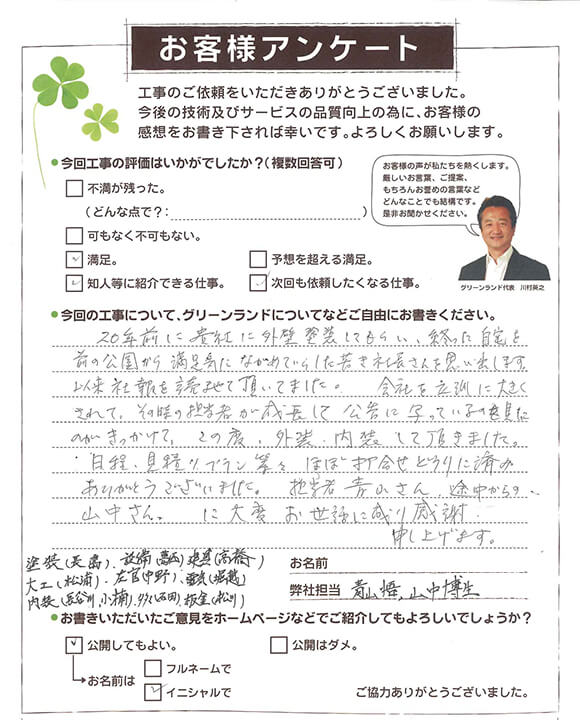 お客様アンケート
工事のご依頼をいただきありがとうございました。
今後の技術及びサービスの品質向上の為に、お客様の
感想をお書き下されば幸いです。よろしくお願いします。
今回工事の評価はいかがでしたか？（複数回答可）
不満が残った。
（どんな点で？： ）
可もなく不可もない。
満足。 予想を超える満足。
知人等に紹介できる仕事。 次回も依頼したくなる仕事。
お客様の声が私たちを熱くします。
厳しいお言葉、ご提案、
もちろんお誉めの言葉など
どんなことでも結構です。
是非お聞かせください。
グリーンランド代表 川村英之
今回の工事について、グリーンランドについてなどご自由にお書きください。
20年前に貴社に外壁塗装してもらい、終った自宅を
前の公園から満足気にながめていらした若き社長さんを思い出します。
以来社報を読ませて頂いてました。 会社を立派に大きく
されて、その時の担当者が成長して公告に写っているのを見た
のがきっかけで、この度、外装、内装して頂きました。
日程、見積り、プラン等々 ほぼ打合せどうりに済み
ありがとうございました。 担当者青山さん、途中からの、
山中さん、 に大変お世話に成り感謝
申し上げます。
塗装(長島)、設備()、建具(高橋)
大工(松浦)、左官(中野)、電気()
内装(長谷川、小楠)、タイル(石田)、板金(松川)
お名前
弊社担当 青山悟、山中博生
お書きいただいたご意見をホームページなどでご紹介してもよろしいでしょうか？
公開してもよい。 公開はダメ。
お名前は フルネームで
イニシャルで
ご協力ありがとうございました。